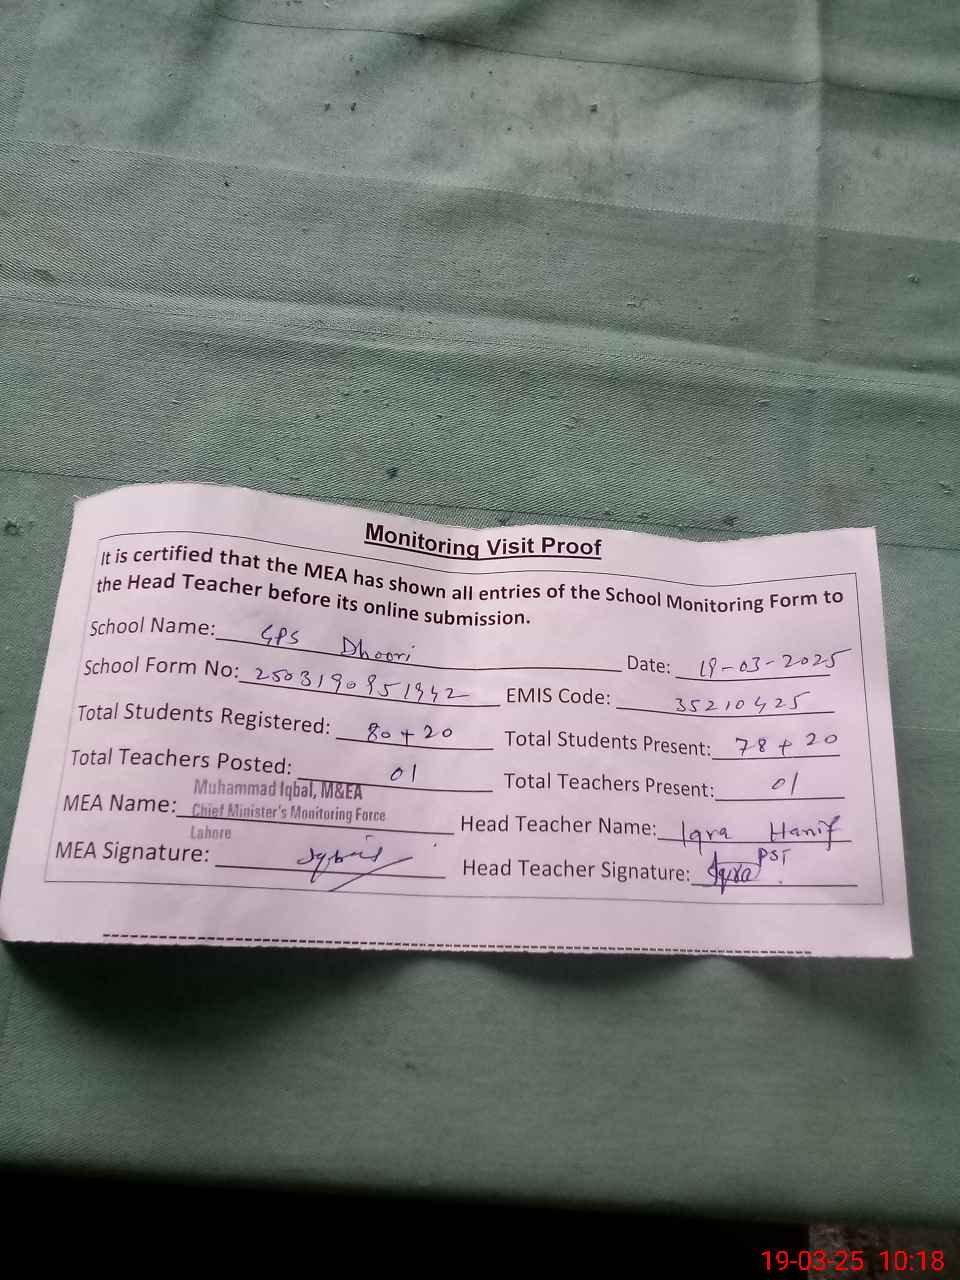 Monitoring Visit Proof
It is certified that the MEA has shown all entries of the School Monitoring Form to
the Head Teacher before its online submission.
School Name: GPS Dhoori Date: 19-03-2025
School Form No: 2503190951942 EMIS Code: 35210425
Total Students Registered: 80+20 Total Students Present: 78+20
Total Teachers Posted: 01 Total Teachers Present: 01
Muhammad Iqbal, M&EA
MEA Name: Chief Minister's Monitoring Force Head Teacher Name: Iqra Hanif
Lahore
PST
MEA Signature: Iqbal Head Teacher Signature: Iqra
19-03-25 10:18